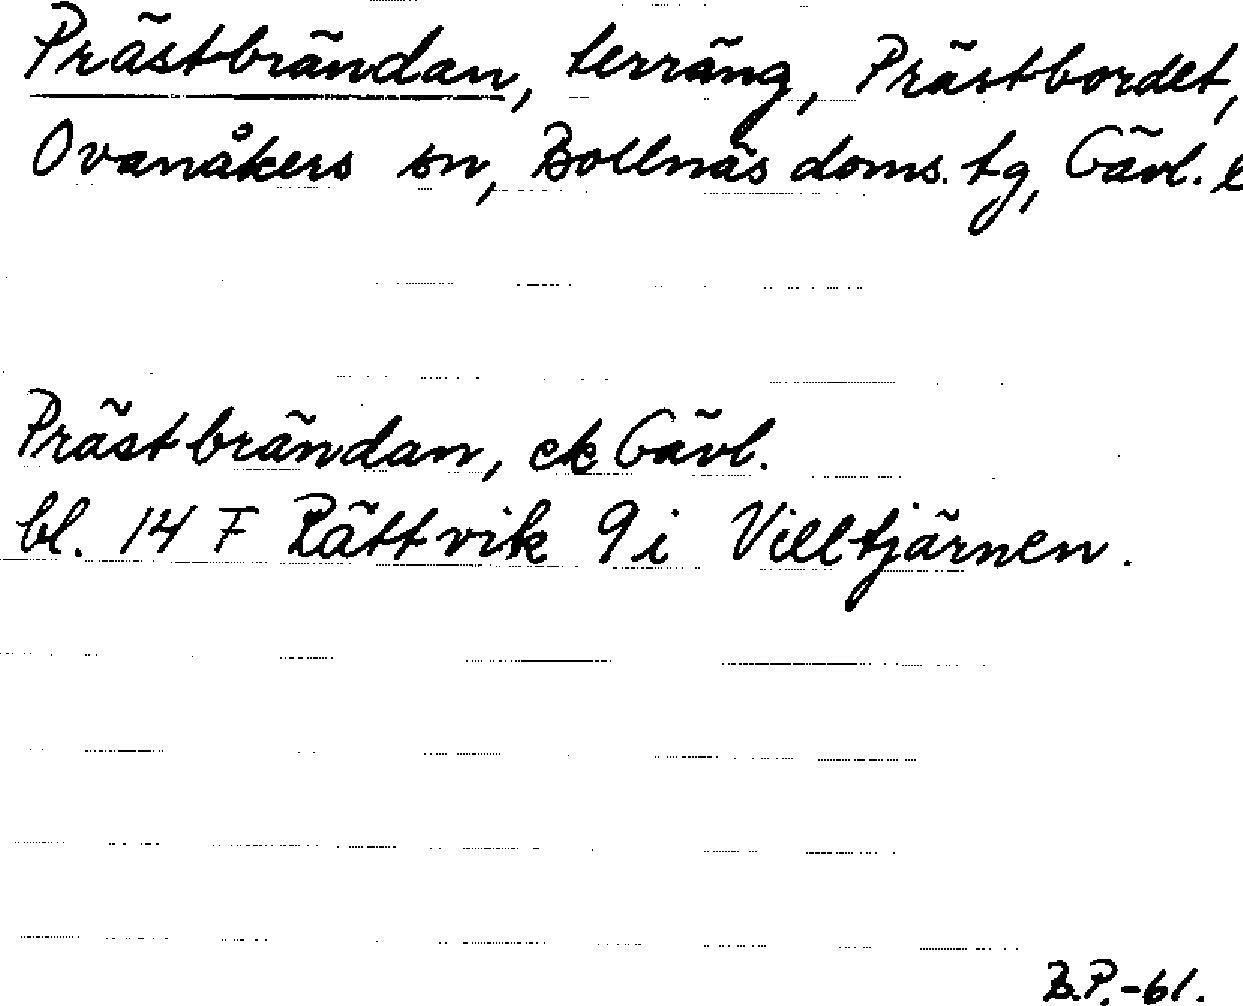 Prästbrändan, terräng, Prästbordet,
Ovanåkers sn, Bollnäs doms. tg, Gävl. l
Prästbrändan, ek Gävl.
bl. 14 F Rättvik 9i Villtjärnen.
B.P.-61.